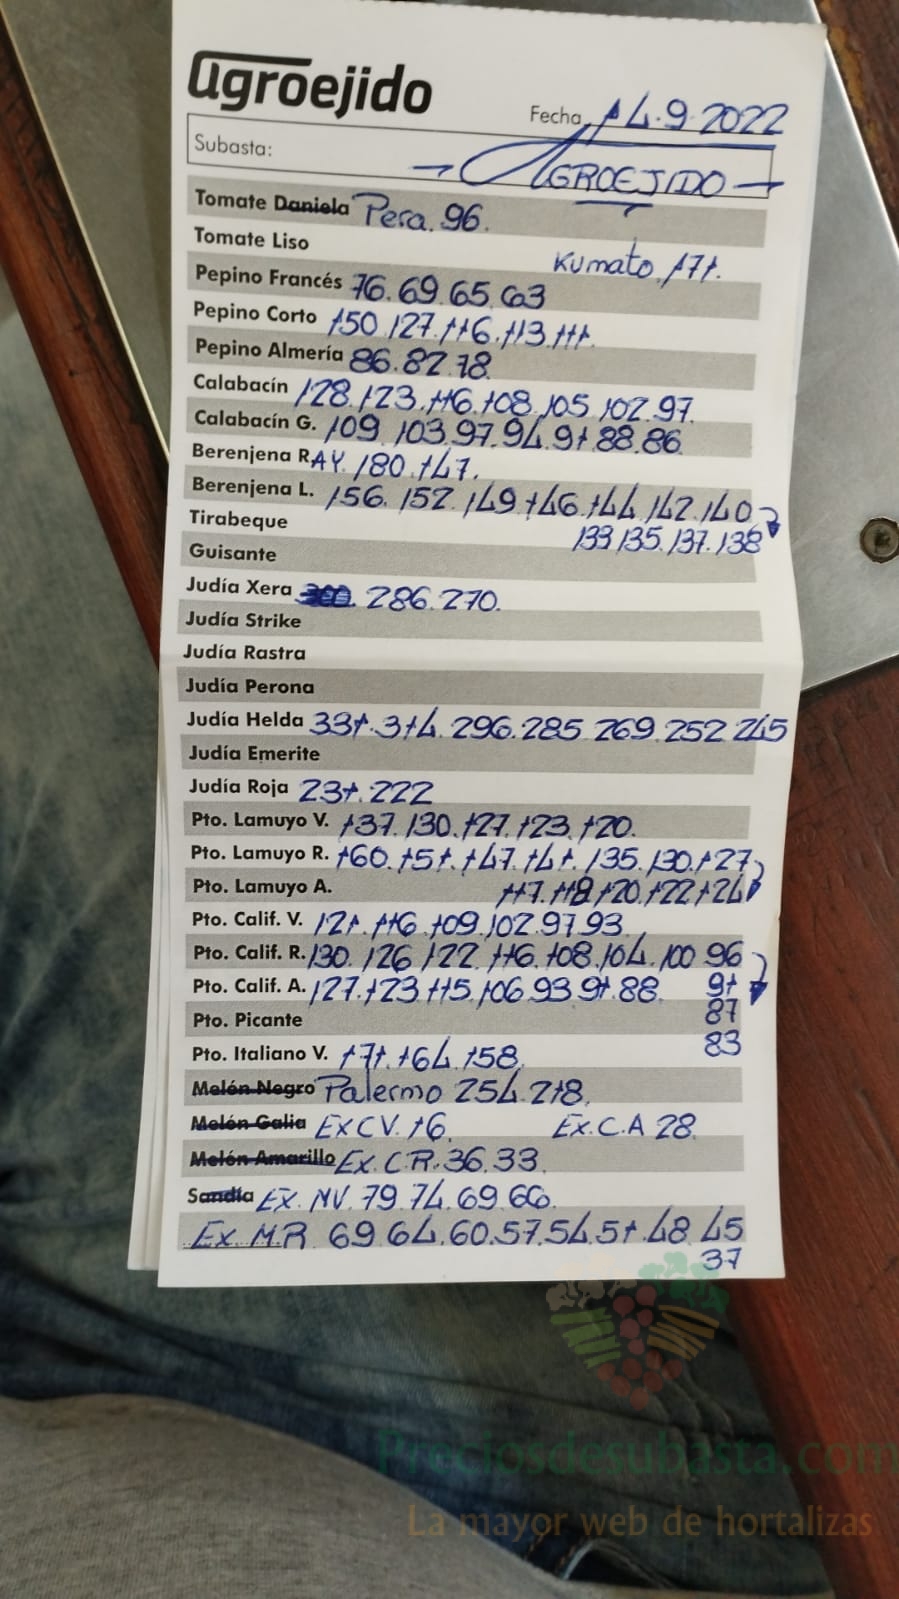 agroejido
Fecha 14.9.2022
Subasta: → AGROEJIDO →
Tomate Daniela Pera. 96.
Tomate Liso Kumato. 171.
Pepino Francés 76.69.65.63
Pepino Corto 150.127.116.113.111.
Pepino Almería 86.82.78
Calabacín 128.123.116.108.105.102.97.
Calabacín G. 109.103.97.94.91.88.86.
Berenjena RAY. 180.147.
Berenjena L. 156.152.149.146.144.142.140
Tirabeque 133.135.137.138
Guisante
Judía Xera 300. 286.270.
Judía Strike
Judía Rastra
Judía Perona
Judía Helda 331.314.296.285.269.252.245
Judía Emerite
Judía Roja 231.222
Pto. Lamuyo V. 137.130.127.123.120.
Pto. Lamuyo R. 160.151.147.141.135.130.127
Pto. Lamuyo A. 117.118.120.122.124
Pto. Calif. V. 121.116.109.102.97.93
Pto. Calif. R. 130.126.122.116.108.104.100.96
Pto. Calif. A. 127.123.115.106.93.91.88. 91
Pto. Picante 87
Pto. Italiano V. 171.164.158. 83
Melón Negro Palermo 254.218.
Melón Galia Ex CV. 16. Ex.C.A 28.
Melón Amarillo Ex. C.R. 36.33.
Sandía Ex. MV. 79.74.69.66.
Ex. M.R 69.64.60.57.54.51.48.45
37
Preciosdesubasta.com
La mayor web de hortalizas